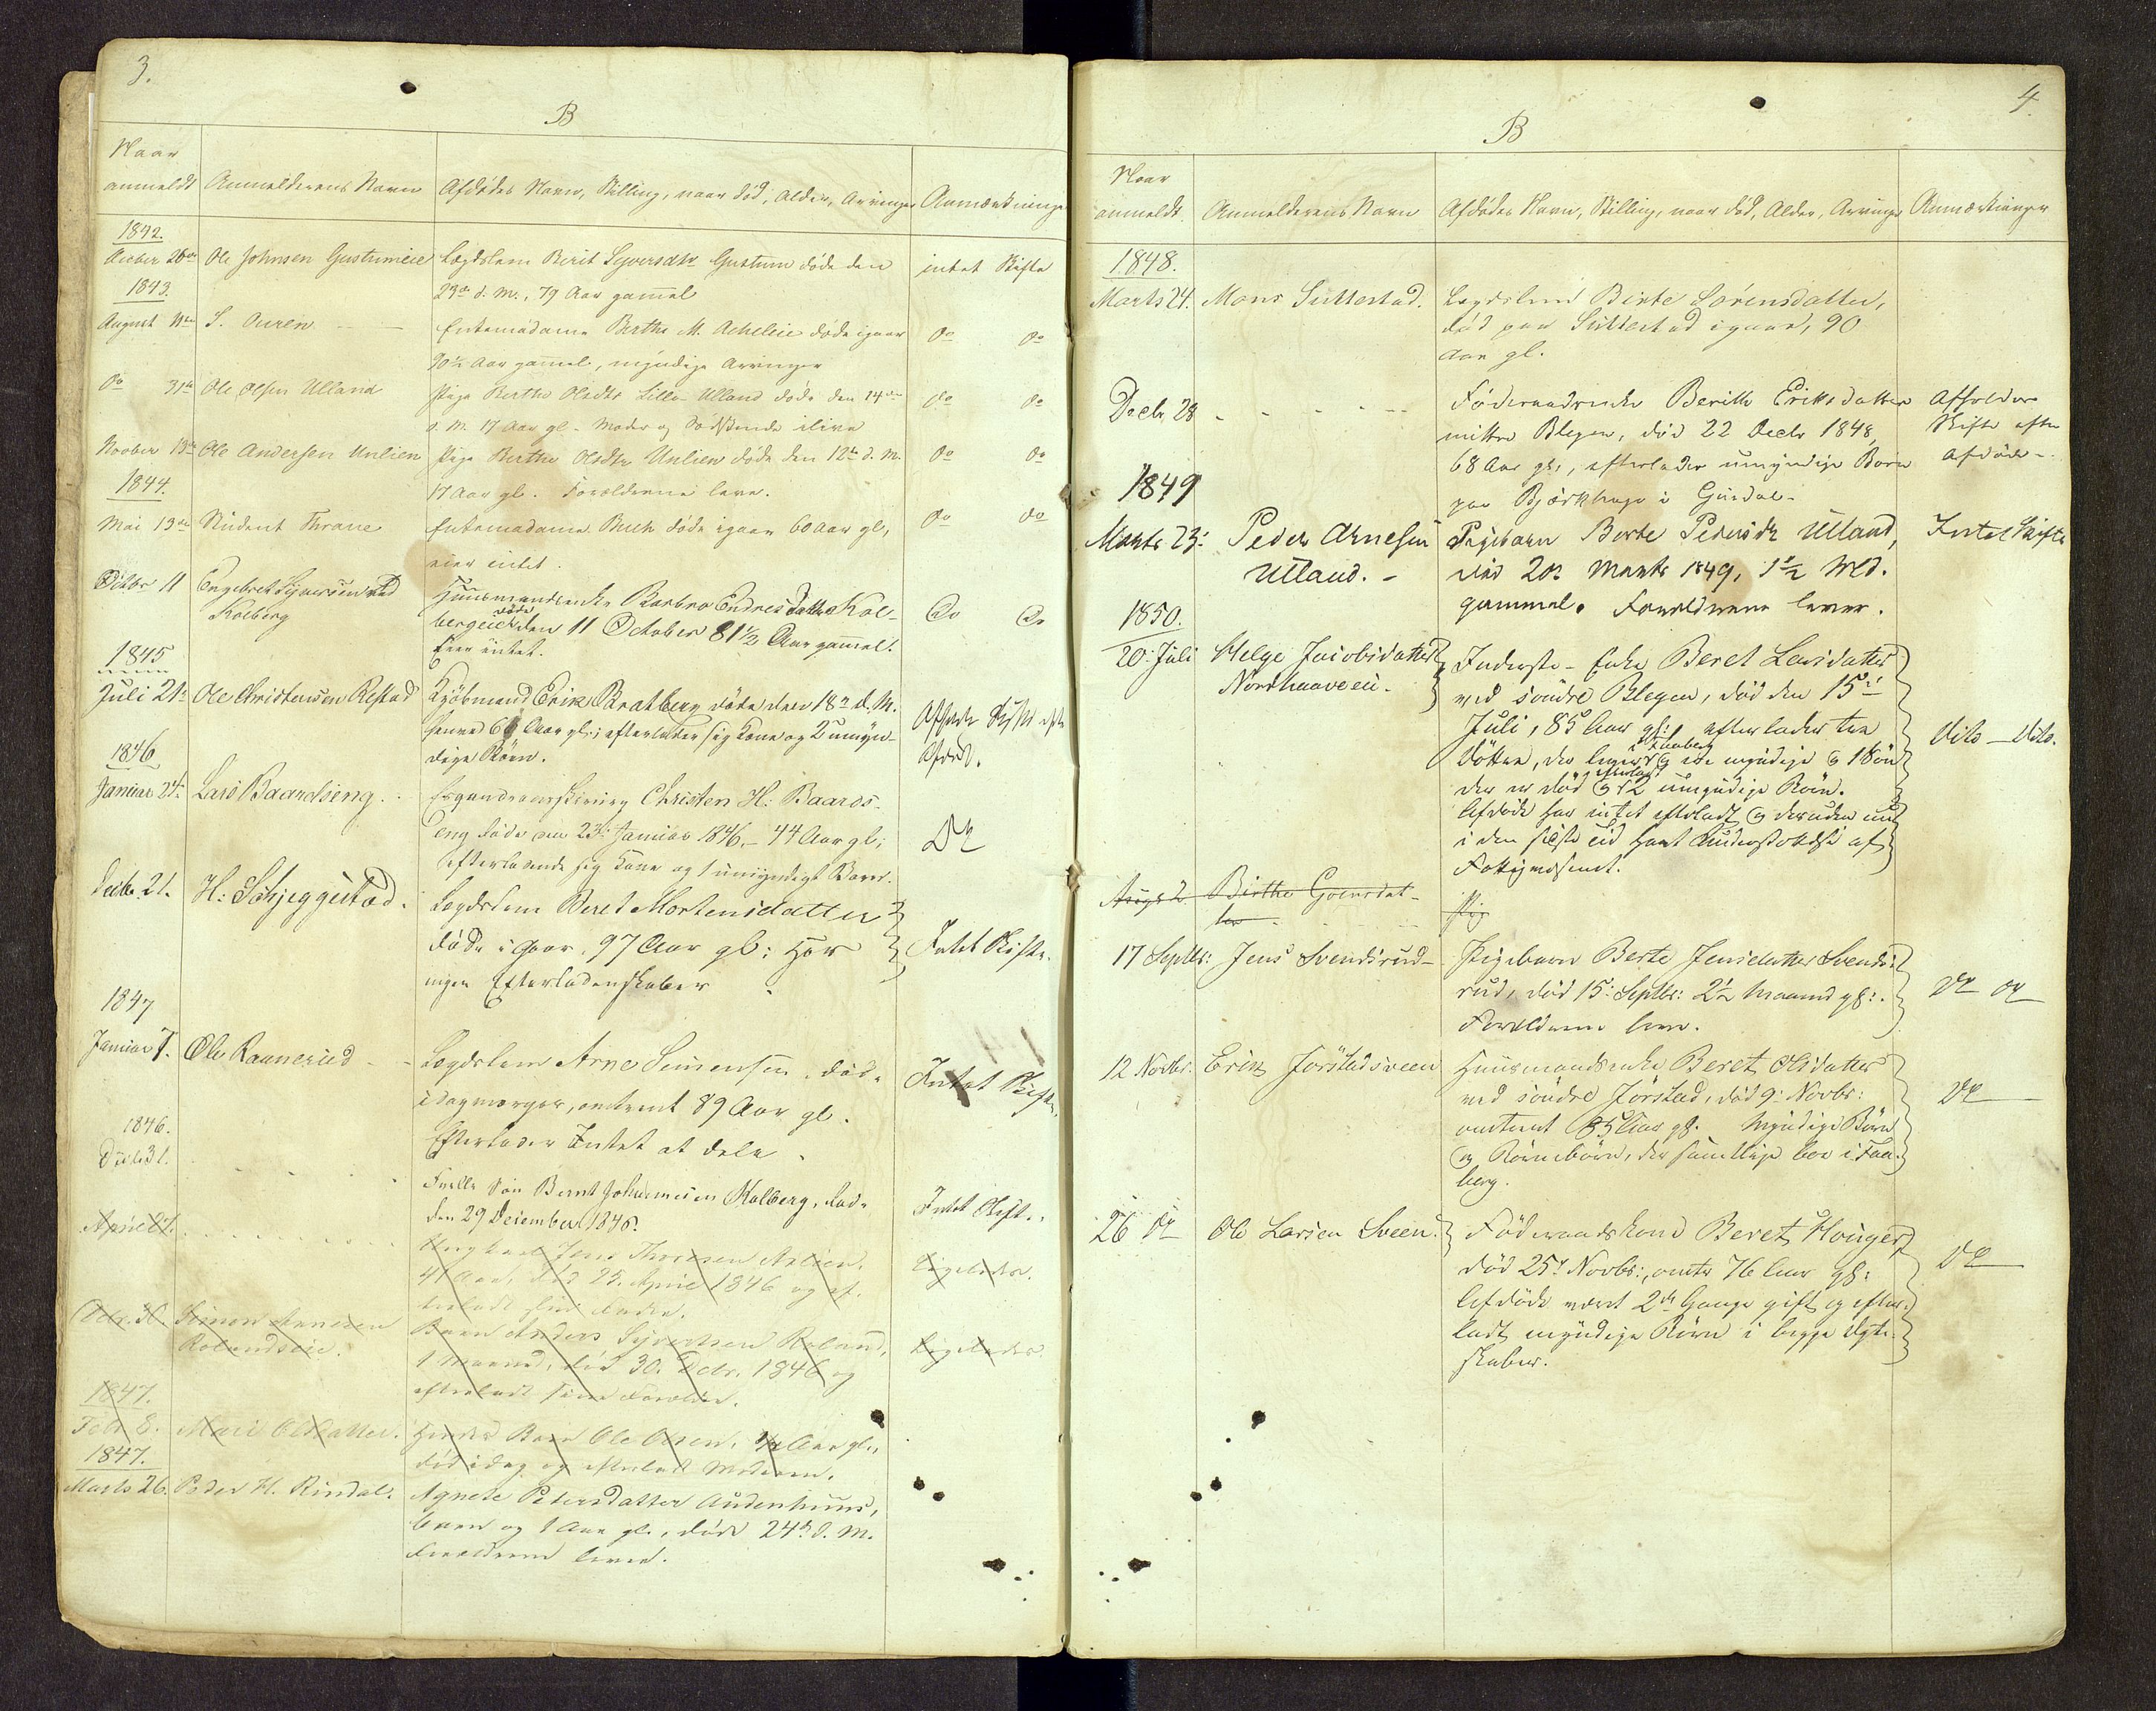 3.
B
Naar
anmeldt
Anmelderens Navn
Afdødes Navn, Stilling, naar død, Alder, Arvinger
Anmærkninger
1842.
Ole Johnsen Gustumeie
Lægdslem Berit Syversdtr Gustum døde den
intet Skifte
23de d. M., 79 Aar gammel
1843.
August
S. Ouren
Enkemadame Berthe M. døde igaar
Do Do
90½ Aar gammel, myndige Arvinger
Do 31te
Ole Olsen Ulland
Pige Berthe Olsdtr Lille-Ulland døde den 14de
Do Do
d. M. 17 Aar gl. Moder og Sødskende ilive
Novber 13de
Ole Andersen Unlien
Pige Berthe Olsdtr Unlien døde den 12te d. M.
Do Do
17 Aar gl. Forældrene leve.
1844.
Mai 13de
Student Thrane
Enkemadame Buch døde igaar 60 Aar gl,
Do Do
eier intet.
Octbr 11
Engebret Syversen
Kolberg
Huusmandsenke Barbro Endresdatter Kol-
bergeiet døde den 11 October 81½ Aar gammel.
Eier intet.
Do Do
1845
Juli 21de
Ole Christensen Rolstad
Kjøbmand Erik Bratberg døde den 18de d. M.
66 Aar gl; efterlader sig Kone og 2 umyn-
dige Børn.
Afholdt Skifte efter
Afdøde.
1846
Januar 24.
Lars Baardseng.
Christen H. Baards-
eng døde den 23de Januar 1846, 44 Aar gl;
efterladende sig Kone og 1 umyndigt Barn.
Do
Decbr 21.
H. Schjeggestad.
Lægdslem Beret Mortensdatter
døde igaar, 97 Aar gl: Har
ingen Efterladenskaber
Intet Skifte.
1847
Januar 7.
Ole Raanerud
Lægdslem Arne Simensen, døde
idagmorges, omtrent 89 Aar gl.
Efterlader Intet at dele.
Intet Skifte.
1846.
Decbr 31.
Bernt Johannesen Kolberg, døde
den 29 December 1846.
Intet Skifte.
April 27.
Ungkarl Jens Thoresen
41 Aar, død 25. April 1846 og ef-
terladt sin Fader.
Ligeledes.
Decbr. 30.
Simon Arnesen
Rolandseie.
Barn Anders Syvertsen Roland,
1 Maaned, død 30. Decbr. 1846 og
efterladt sine Forældre.
Ligeledes
1847.
Febr. 8.
Mari Olsdatter.
Hendes Barn Ole Olsen, ¼ Aar gl.,
død idag og efterladt Moderen.
1847.
Marts 26.
Peder H. Rindal.
Agnete Petersdatter Audenhuus,
Barn og 1 Aar gl., døde 24de d. M.
Forældrene lever.
4.
B
Naar
anmeldt.
Anmelderens Navn
Afdødes Navn, Stilling, naar død, Alder, Arvinger
Anmærkninger
1848.
Marts 24.
Mons Suttestad.
Lægdslem Birte Sørensdatter,
død paa Suttestad igaar, 90
Aar gl.
Decbr 28
Føderaadsenke Berith Eriksdatter
mittre Blegen, død 22 Decbr 1848,
68 Aar gl., efterlader umyndige Børn
paa Bjørkhage i Gausdal.
Afholdes
Skifte efter
Afdøde.
1849
Marts 23.
Peder Arnesen
Ulland.
Pigebarn Berte Pedersdtr Ulland,
død 20de Marts 1849, 1½ Md.
gammel. Forældrene lever.
Intet Skifte
1850.
20. Juli
Helge Jacobsdatter
Nordhaaveeie.
Inderste-Enke Beret Larsdatter
ved søndre Blegen, død den 15de
Juli, 85 Aar gl: efterlader tre
Døttre, der lever i Faaberg og ere myndige og 1 Søn
der er død og efterladt 2 umyndige Børn.
Afdøde har intet efterladt og desuden nu
i den sidste Tid havt Understøttelse af
Fattigvæsenet.
Dito - Dito.
August 2
Birthe Goensdat-
ter
Pig
17 Septbr:
Jens Svendsrud
Pigebarn Berte Jensdatter Svends-
rud, død 15. Septbr: 2½ Maaned gl:
Forældrene leve.
Do Do
12 Novbr.
Erik Jørstadsveen
Huusmandsenke Beret Olsdatter
ved søndre Jørstad, død 9. Novbr:
omtrent 85 Aar gl. Myndige Børn
og Børnebørn, der samtlige bor i Faa-
berg.
Do
26 Do
Ole Larsen Sveen.
Føderaadskone Beret Houger,
død 25de Novbr:, omtr 76 Aar gl:
Afdøde været 2de Gange gift og efter-
ladt myndige Børn i begge Ægte-
skaber.
Do